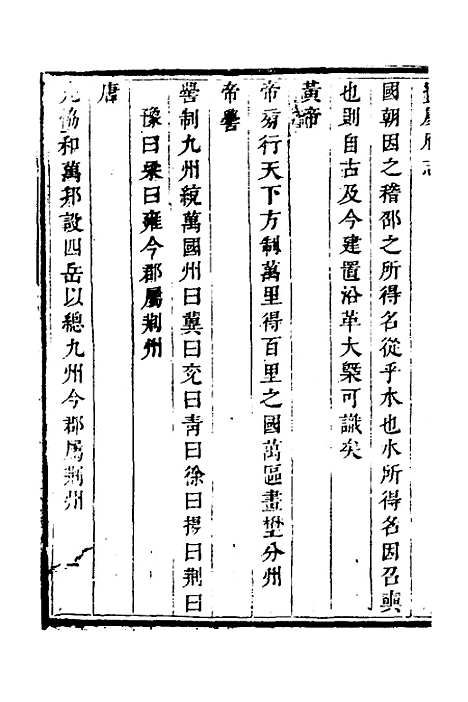 寶慶府志
國朝因之稽邵之所得名從乎水也水所得名因召奭
也則自古及今建置沿革大槩可識矣
黃帝
帝旁行天下方制萬里得百里之國萬區畫壄分州
帝嚳
嚳制九州統萬國州曰冀曰兗曰青曰徐曰揚曰荆曰
豫曰梁曰雍今郡屬荆州
唐
協和萬邦設四岳以總九州今郡屬荆州